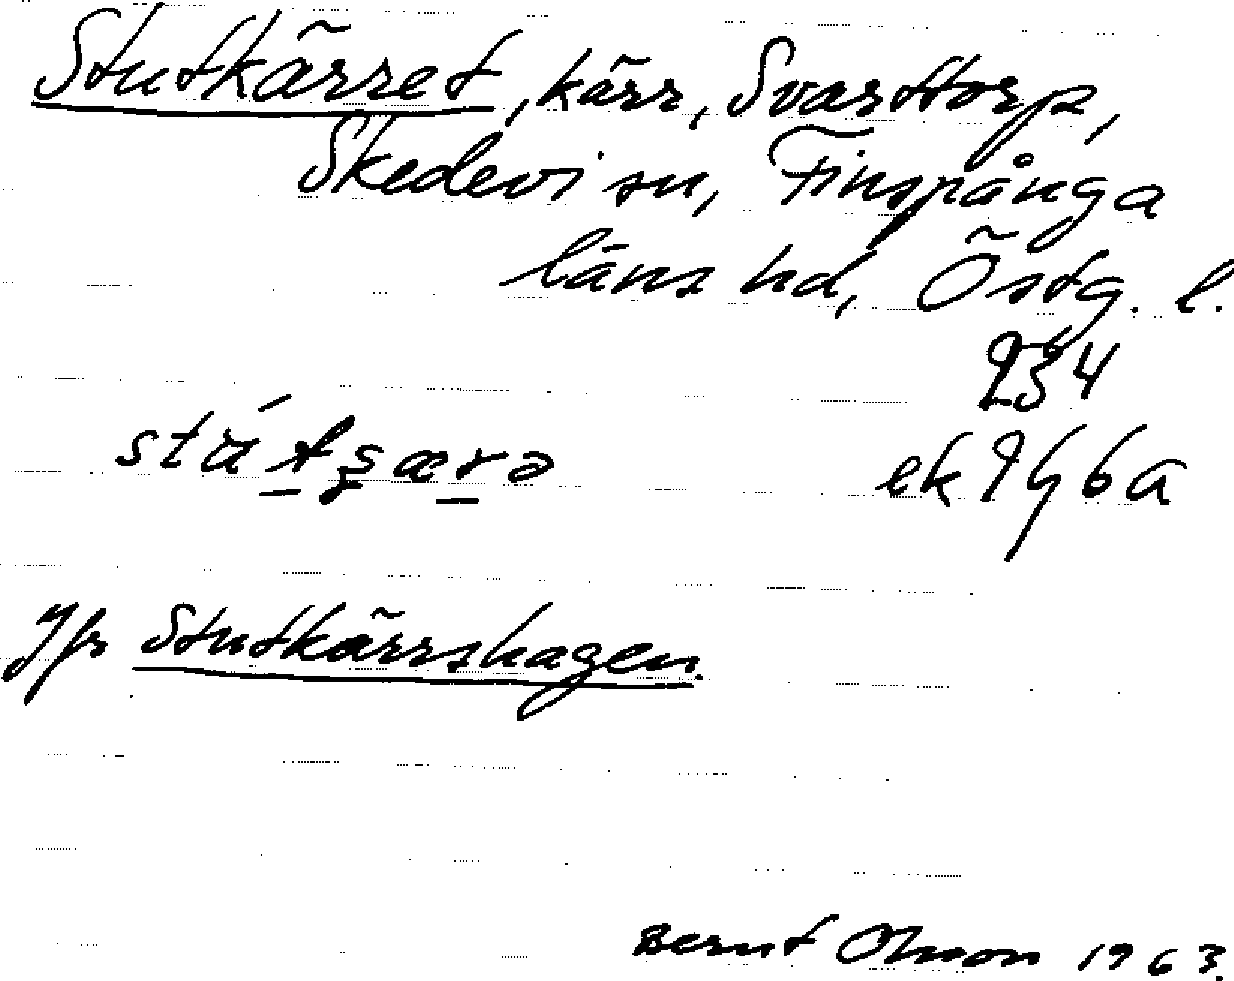 Stutkärret, kärr, Svarttorp,
Skedevi sn, Finspånga
läns hd, Östg. l.
234
ek 9G6a
Jfr Stutkärrshagen.
Bernt Olsson 1963.